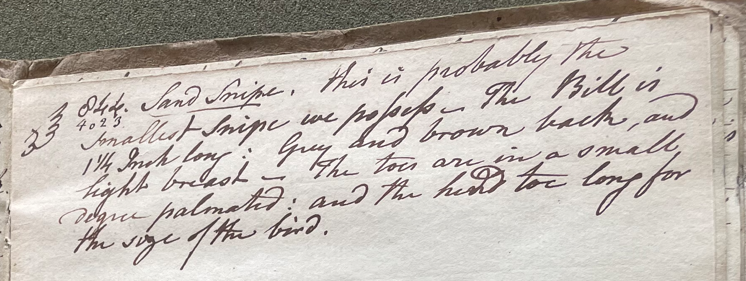 33 844. Sand Snipe. this is probably the
4023
Smallest Snipe we possess – The Bill is
1¼ Inch long: Grey and brown back, and
light breast – The toes are in a small
degree palmated: and the hind toe long for
the size of the bird.